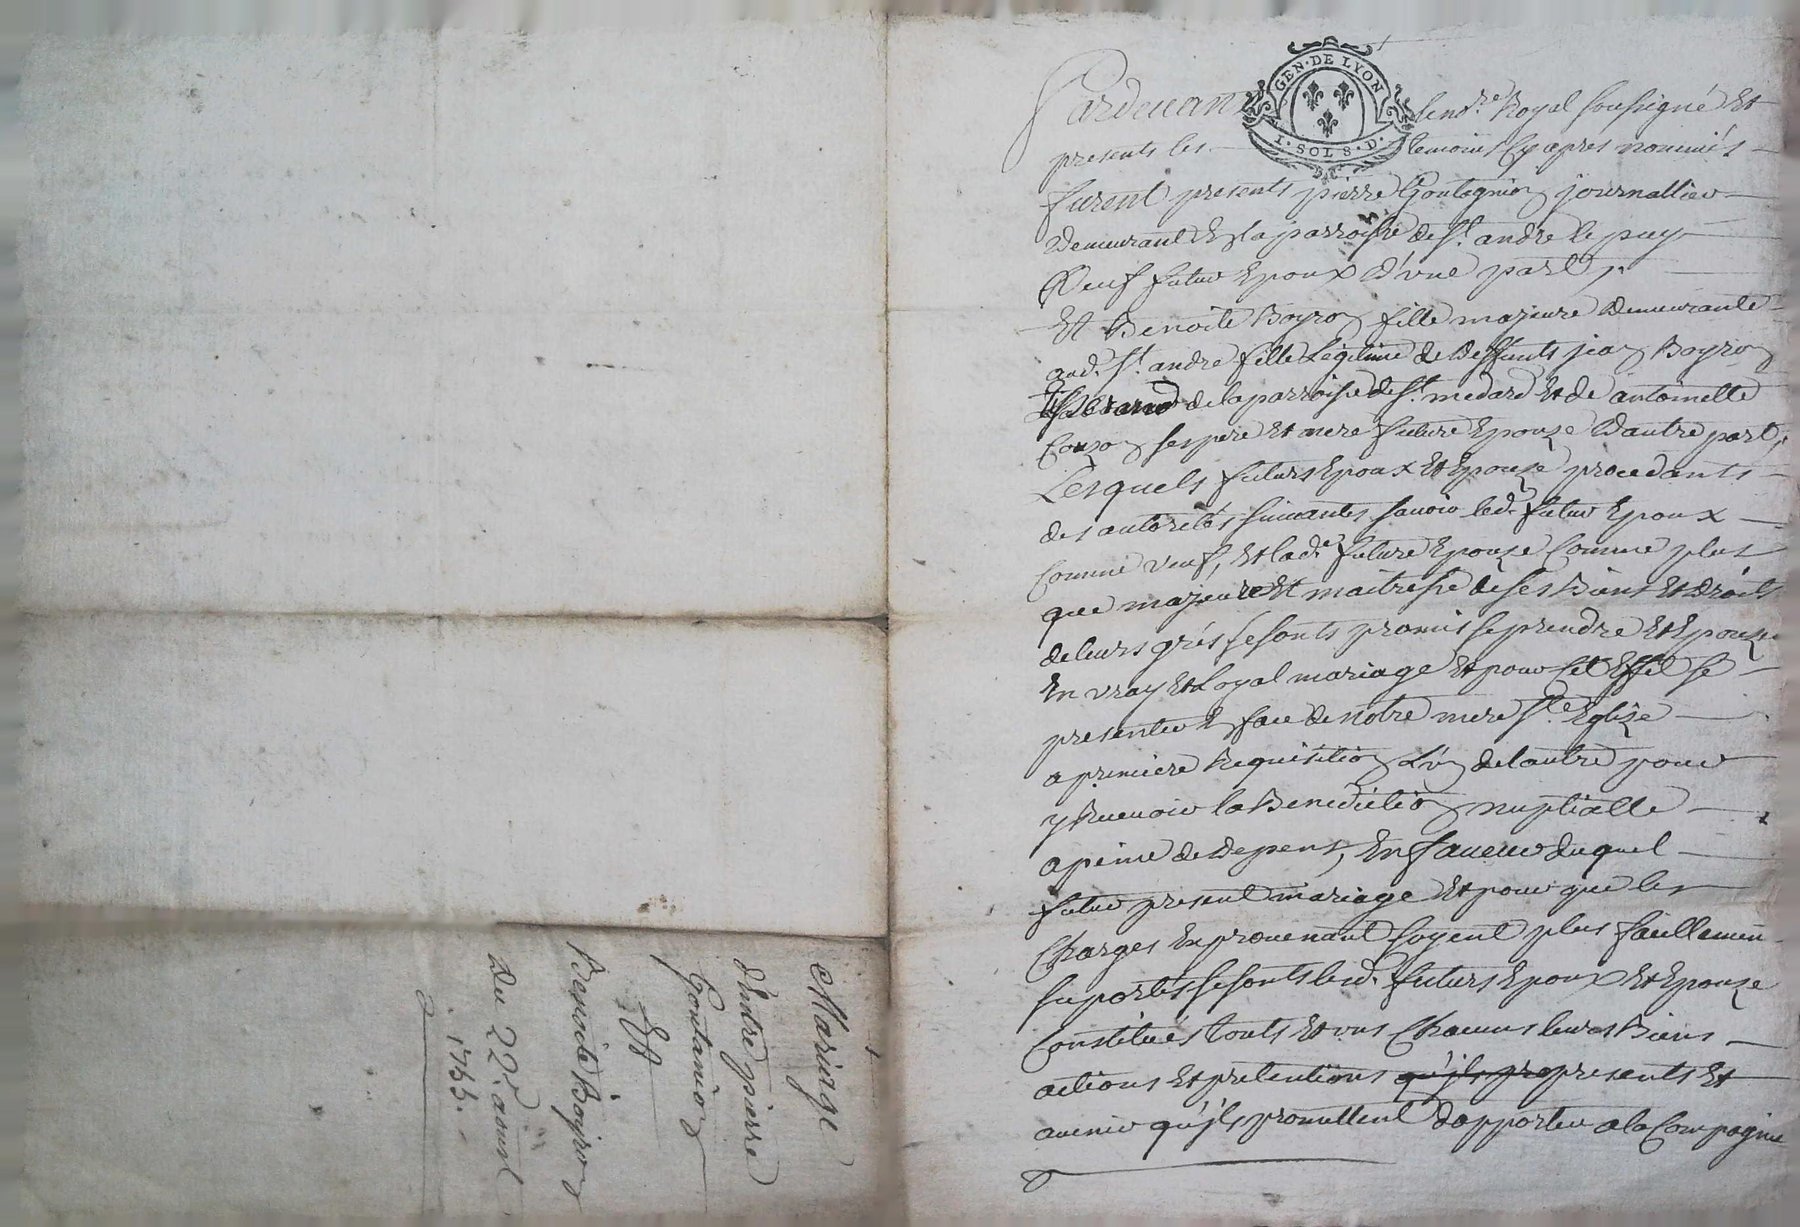 GEN·DE LYON
1·SOL 8·D·
Pardevant le no.re Royal soussigné Et
presents les temoins Cy apres nommés
furent presents pierre Goutagnion journallier
Demeurant En la parroisse de St. andré le puy
Veuf futur Epoux d'vne part,
Et Benoite Boyron fille majeure Demeurante
aud. St. andré fille Legitime de Deffunts jean Boyron
de la parroisse de St. medard Et de antoinette
ses pere Et mere future Epouze d'autre part,
Lesquels futurs Epoux Et Epouze procedants
des autorités suivantes sauoir led. futur Epoux
comme veuf, Et lad.e future Epouze Comme plus
que majeure Et maitresse de ses Biens Et Droits
de leurs grés se sonts promis se prendre Et Epouzer
En vray Et Loyal mariage Et pour Cet Effet se
presenter En face de notre mere Ste. Eglize
a premiere Requisition L'vn de l'autre pour
y Receuoir la Benediction nuptialle
a peine de Depens, En faueur duquel
futur present mariage Et pour que les
Charges En prouenant soyent plus facillement
suportés se sonts lesd. futurs Epoux Et Epouze
Constitués touts Et vns Chacuns leurs Biens
actions Et pretentions qu'jls pro presents Et
auenir qu'jls promettent d'apporter a la Compagnie
Mariage
d'Entre pierre
Goutanion
Et
Benoite Boyron
Du 22e. aoust
1755.